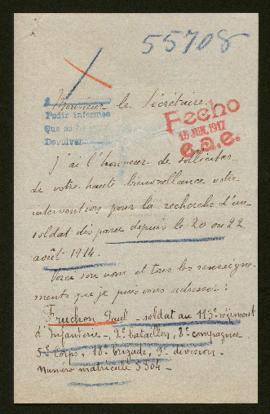 55708
Monsieur le Secrétaire,
Pedir informes
Que se
Devolver
Fecho
15 JUN. 1917
e.a.e.
J'ai l'honneur de solliciter
de votre haute bienveillance votre
intervention pour la recherche d'un
soldat disparu depuis le 20 ou 22
août 1914.
Voici son nom et tous les renseigne-
ments que je puis vous adresser:
Paul - soldat au 113e régiment
d'Infanterie - 2e bataillon, 8e compagnie
5e Corps, 18e brigade, 9e division.
Numéro matricule 5504.